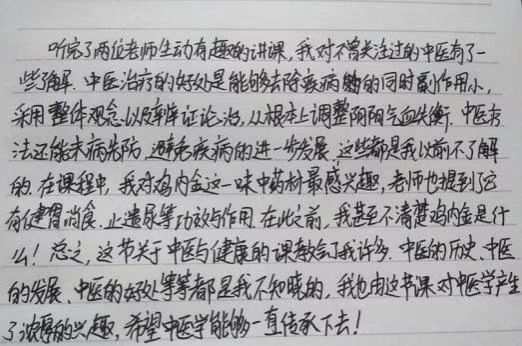 听完了两位老师生动有趣的讲课,我对不曾关注过的中医有了一
些了解.中医治疗的好处是能够去除疾病的同时副作用小,
采用整体观念以及辨证论治,从根本上调整阴阳气血失衡.中医方
法还能未病先防,避免疾病的进一步发展.这些都是我以前不了解
的.在课程中,我对鸡内金这一味中药材最感兴趣,老师也提到了它
有健胃消食、止遗尿等功效与作用.在此之前,我甚至不清楚鸡内金是什
么!总之,这节关于中医与健康的课教会了我许多.中医的历史、中医
的发展、中医的好处等等都是我不知晓的,我也由这节课对中医学产生
了浓厚的兴趣,希望中医学能够一直传承下去!